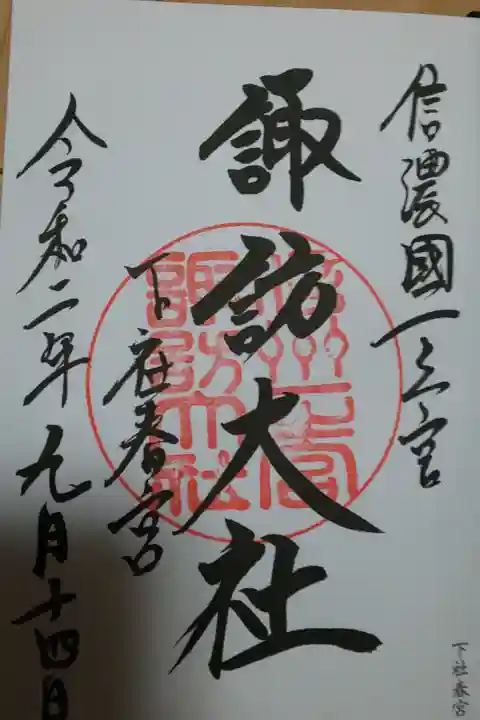 信濃國一之宮
諏訪大社
下社春宮
令和二年九月十四日
下社春宮